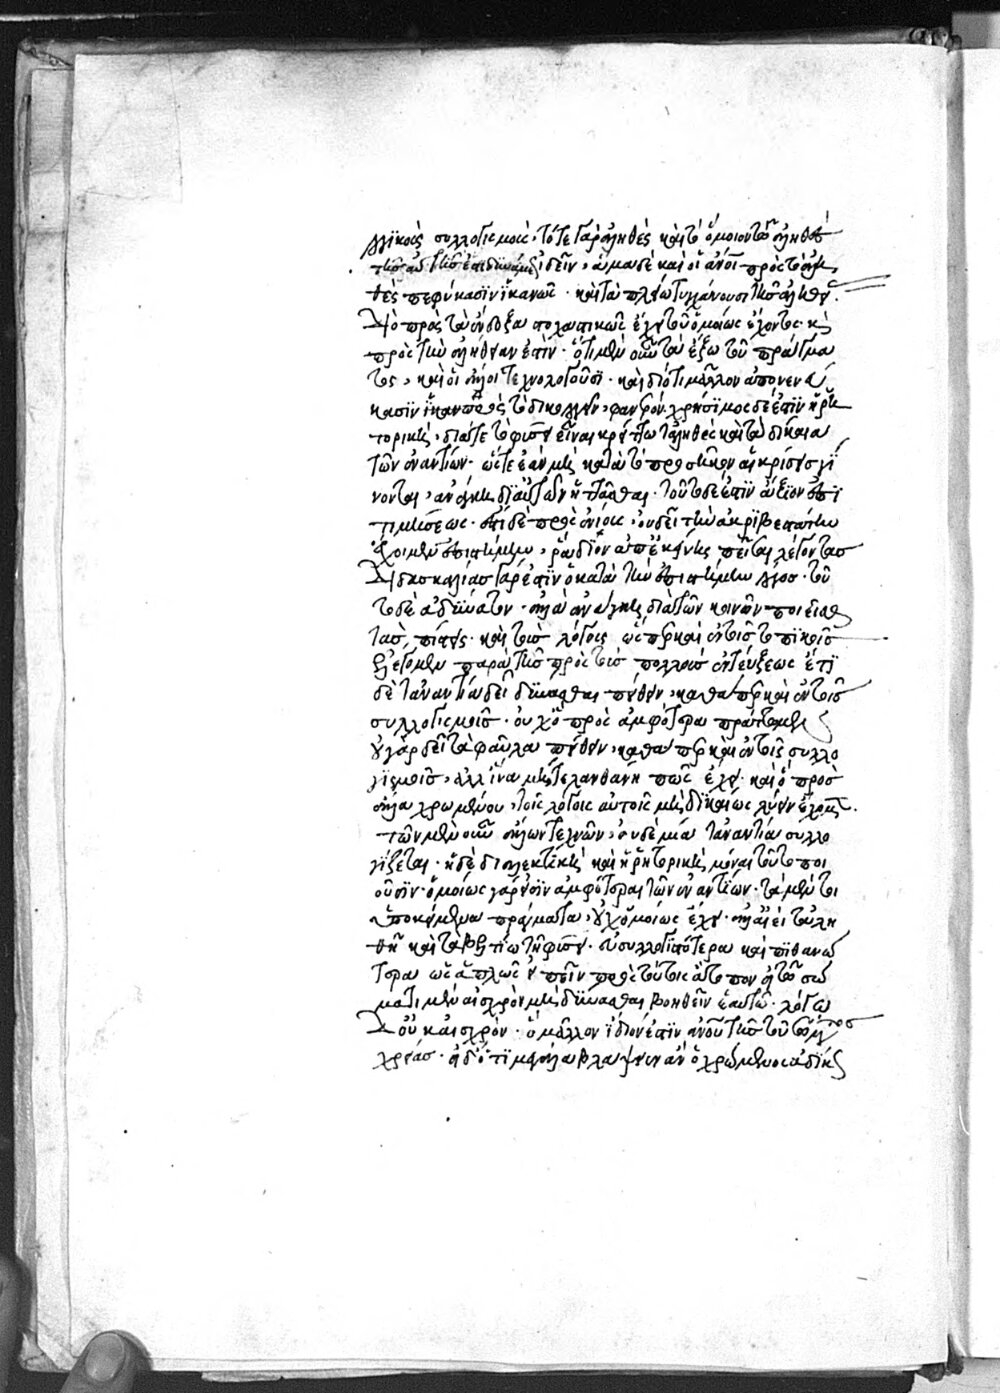 λγϊκοὺς συλλογισμούς, τότε γὰρ ἀληθὲς καὶ τὸ ὅμοιον τῶ ἀληθεῖ
τῆς αὐτῆς ἐστι δυνάμεως ἰδεῖν, ἅμα δὲ καὶ οἱ ἄνοι πρὸς τὸ ἀλη
θὲς πεφύκασϊν ἱκανῶς· καὶ τὰ πλείω τυγχάνουσι τῆς ἀληθεί.
Διὸ πρὸς τὰ ἔνδοξα στοχαστικῶς ἔχειν τοῦ ὁμοίως ἔχοντος κὶ
πρὸς τὴν ἀλήθειαν ἐστὶν· ὅτι μὲν οὖν τὰ ἔξω τοῦ πράγμα
τος, καὶ οἱ ἄλλοι τεχνολογοῦσϊ· καὶ διότι μᾶλλον ἀπονενεύ
κασϊν ἱκανπρὸς τὸ δικολογεῖν, φανερόν. χρήσϊμος δέ ἐστϊν ἡ ῥη
τορικὴ, διά τε τὸ φύσει εἶναι κρείττω τἀληθὲς καὶ τὰ δίκαια
τῶν ἐναντίων· ὥστε ἐὰν μὴ κατὰ τὸ προσῆκον αἱ κρίσεις γί
νονται, ἀνάγκη δι' αὑτῶν ἡττᾶσθαι. τοῦτο δέ ἐστϊν ἄξϊον ἐπϊ
τιμήσεως. ἔτι δὲ πρὸς ἐνίους, οὐδ' εἰ τὴν ἀκρϊβεστάτην
ἔχοιμεν ἐπιστήμην, ῥάδϊον ἀπ' ἐκείνης πεῖσαι λέγοντασ
Διδασκαλίας γάρ ἐστϊν ὁ κατὰ τὴν ἐπιστήμην λόγοσ· τοῦ
το δὲ ἀδϋνατον· ἀλλὰ ἀνάγκη διὰ τῶν κοινῶν ποιεῖσθαι
τὰσ πίστεις· καὶ τοὺσ λόγους ὥσπερ καὶ ἐν τοῖς τοπϊκοῖς
ἐλέγομεν παρὰ τῆς πρὸς τοὺσ πολλοὺσ ἐντεύξεως ἔτϊ
δὲ τἀναντία δεῖ δύνασθαι πείθειν, καθάπερ καὶ ἐν τοῖς
συλλογισμοῖς· οὐχ ὅπως ἀμφότερα πράττωμεν
οὐ γὰρ δεῖ τὰ φαῦλα πείθειν, καθάπερ καὶ ἐν τοῖς συλλο
γϊσμοῖς, ἀλλ' ἵνα μήτε λανθάνη πῶς ἔχει· καὶ ὅπωσ
ἄλλα χρωμένου, τοῖς λόγοις αὐτοῖς μὴ δϊκαίως λύειν ἔχωμεν.
τῶν μὲν οὖν ἄλλων τεχνῶν, οὐδεμία τἀναντία συλλο
γίζεται· ἡ δὲ διαλεκτικὴ καὶ ἡ ῥητορικὴ μόναι τοῦτο ποι
οῦσϊν· ὁμοίως γάρ εἰσϊν ἀμφότεραι τῶν ἐναντϊων· τὰ μέντοι
ὑποκείμενα πράγματα, οὐχ ὁμοίως ἔχει· ἀλλ' ἀεὶ τἀλη
θῆ καὶ τὰ βελτίω τῆ φύσει· εὐσυλλογιστότερα καὶ πϊθανώ
τερα ὡς ἁπλῶς εἰπεῖν πρὸς τούτοις ἄτοπον εἰ τῶ σώ
ματι μὲν αἰσχρὸν μὴ δύνασθαι βοηθεῖν ἑαυτῶ· λόγω
Δ' οὐκ αἰσχρὸν· ὃ μᾶλλον ἴδϊον ἐστϊν ἀνοῦ τῆς τοῦ σώματος
χρείασ· εἰ δ' ὅτι μεγάλα βλάψειεν ἂν ὁ χρώμενος ἀδίκως